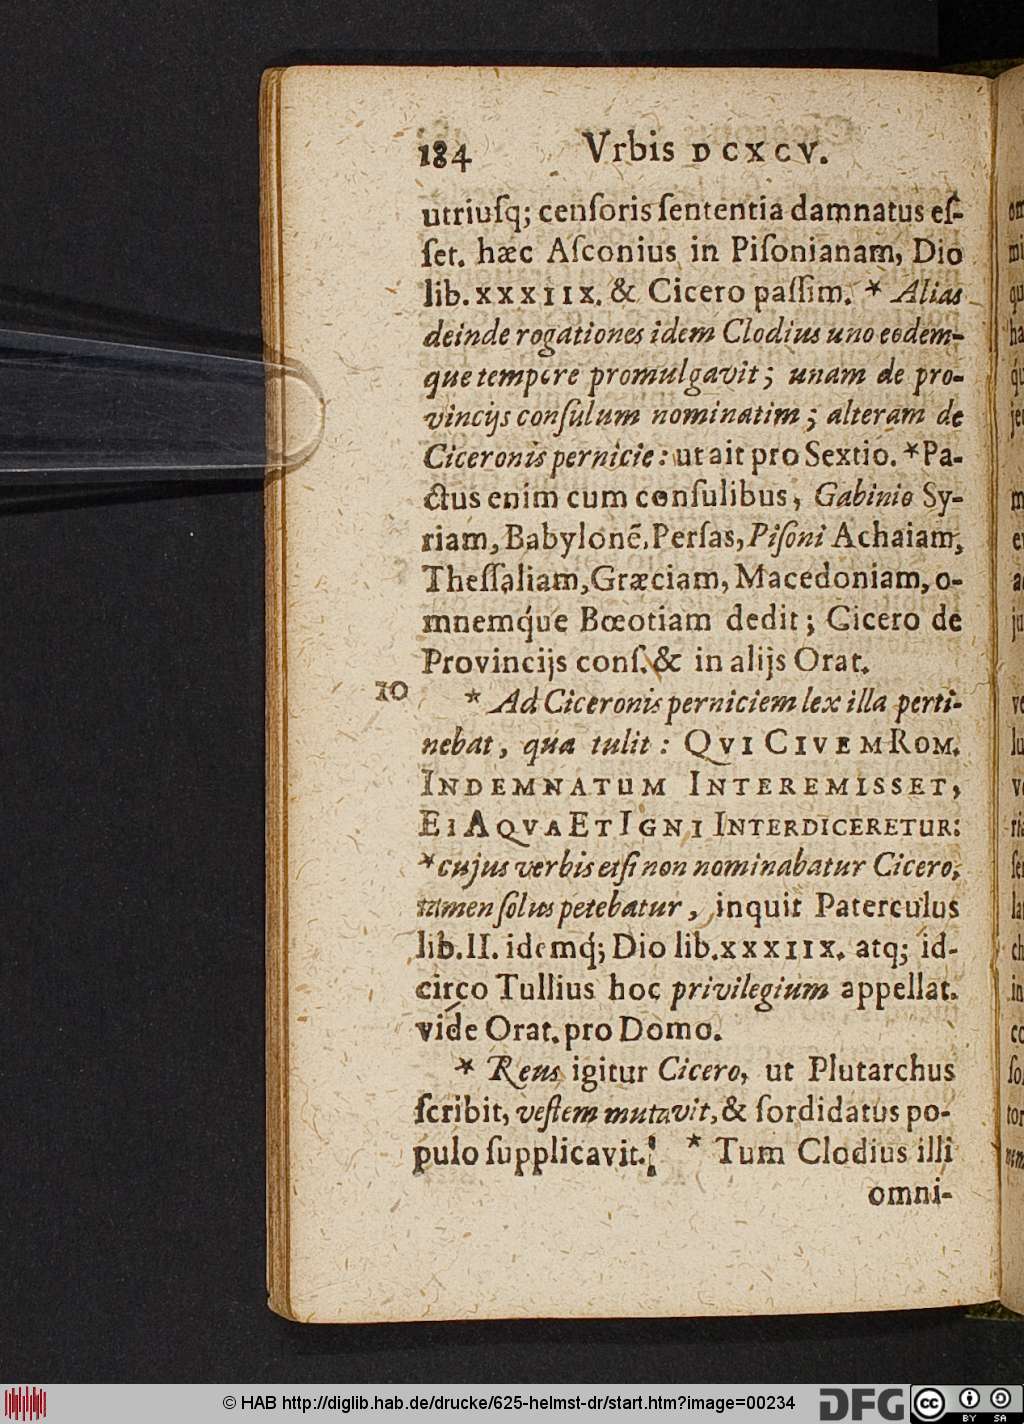 184 Vrbis DCXCV.
utriuſq; cenſoris ſententia damnatus eſ-
ſet. hæc Aſconius in Piſonianam, Dio
lib. XXXIIX. & Cicero paſſim. * Alias
deinde rogationes idem Clodius uno eodem-
que tempore promulgavit; unam de pro-
vincijs conſulum nominatim; alteram de
Ciceronis pernicie: ut ait pro Sextio. * Pa-
ctus enim cum conſulibus, Gabinio Sy-
riam, Babylonē, Perſas, Piſoni Achaiam,
Theſſaliam, Græciam, Macedoniam, o-
mnemq́ue Bœotiam dedit; Cicero de
Provincijs conſ. & in alijs Orat.
10 * Ad Ciceronis perniciem lex illa perti-
nebat, qua tulit: QVI CIVEM ROM.
INDEMNATUM INTEREMISSET,
EI AQVA ET IGNI INTERDICERETUR:
* cujus verbis etſi non nominabatur Cicero,
tamen ſolus petebatur, inquit Paterculus
lib. II. idemq́; Dio lib. XXXIIX. atq; id-
circo Tullius hoc privilegium appellat.
vide Orat. pro Domo.
* Reus igitur Cicero, ut Plutarchus
ſcribit, veſtem mutavit, & ſordidatus po-
pulo ſupplicavit. * Tum Clodius illi
omni-
© HAB http://diglib.hab.de/drucke/625-helmst-dr/start.htm?image=00234 DFG cc BY SA